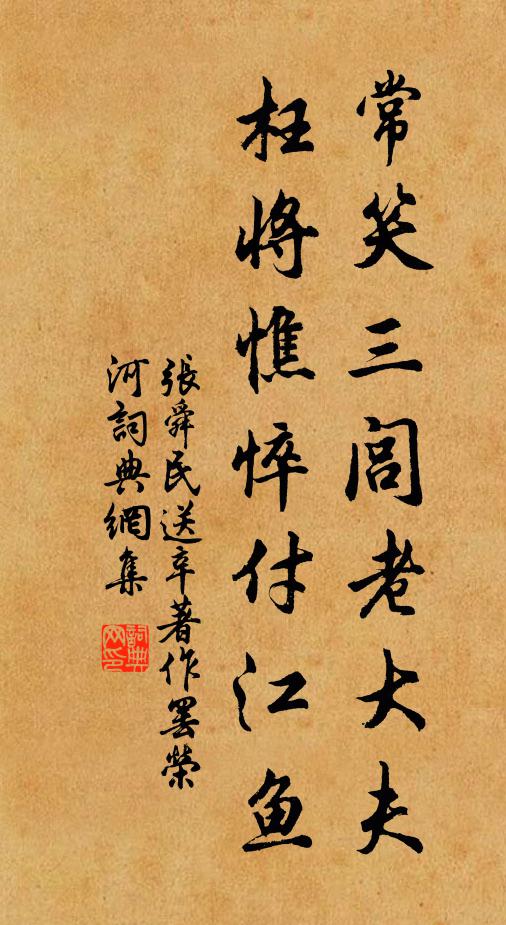 常笑三閭老大夫
枉將憔悴付江魚
張舜民送辛著作罷榮
河詞典網集
詞典
网印